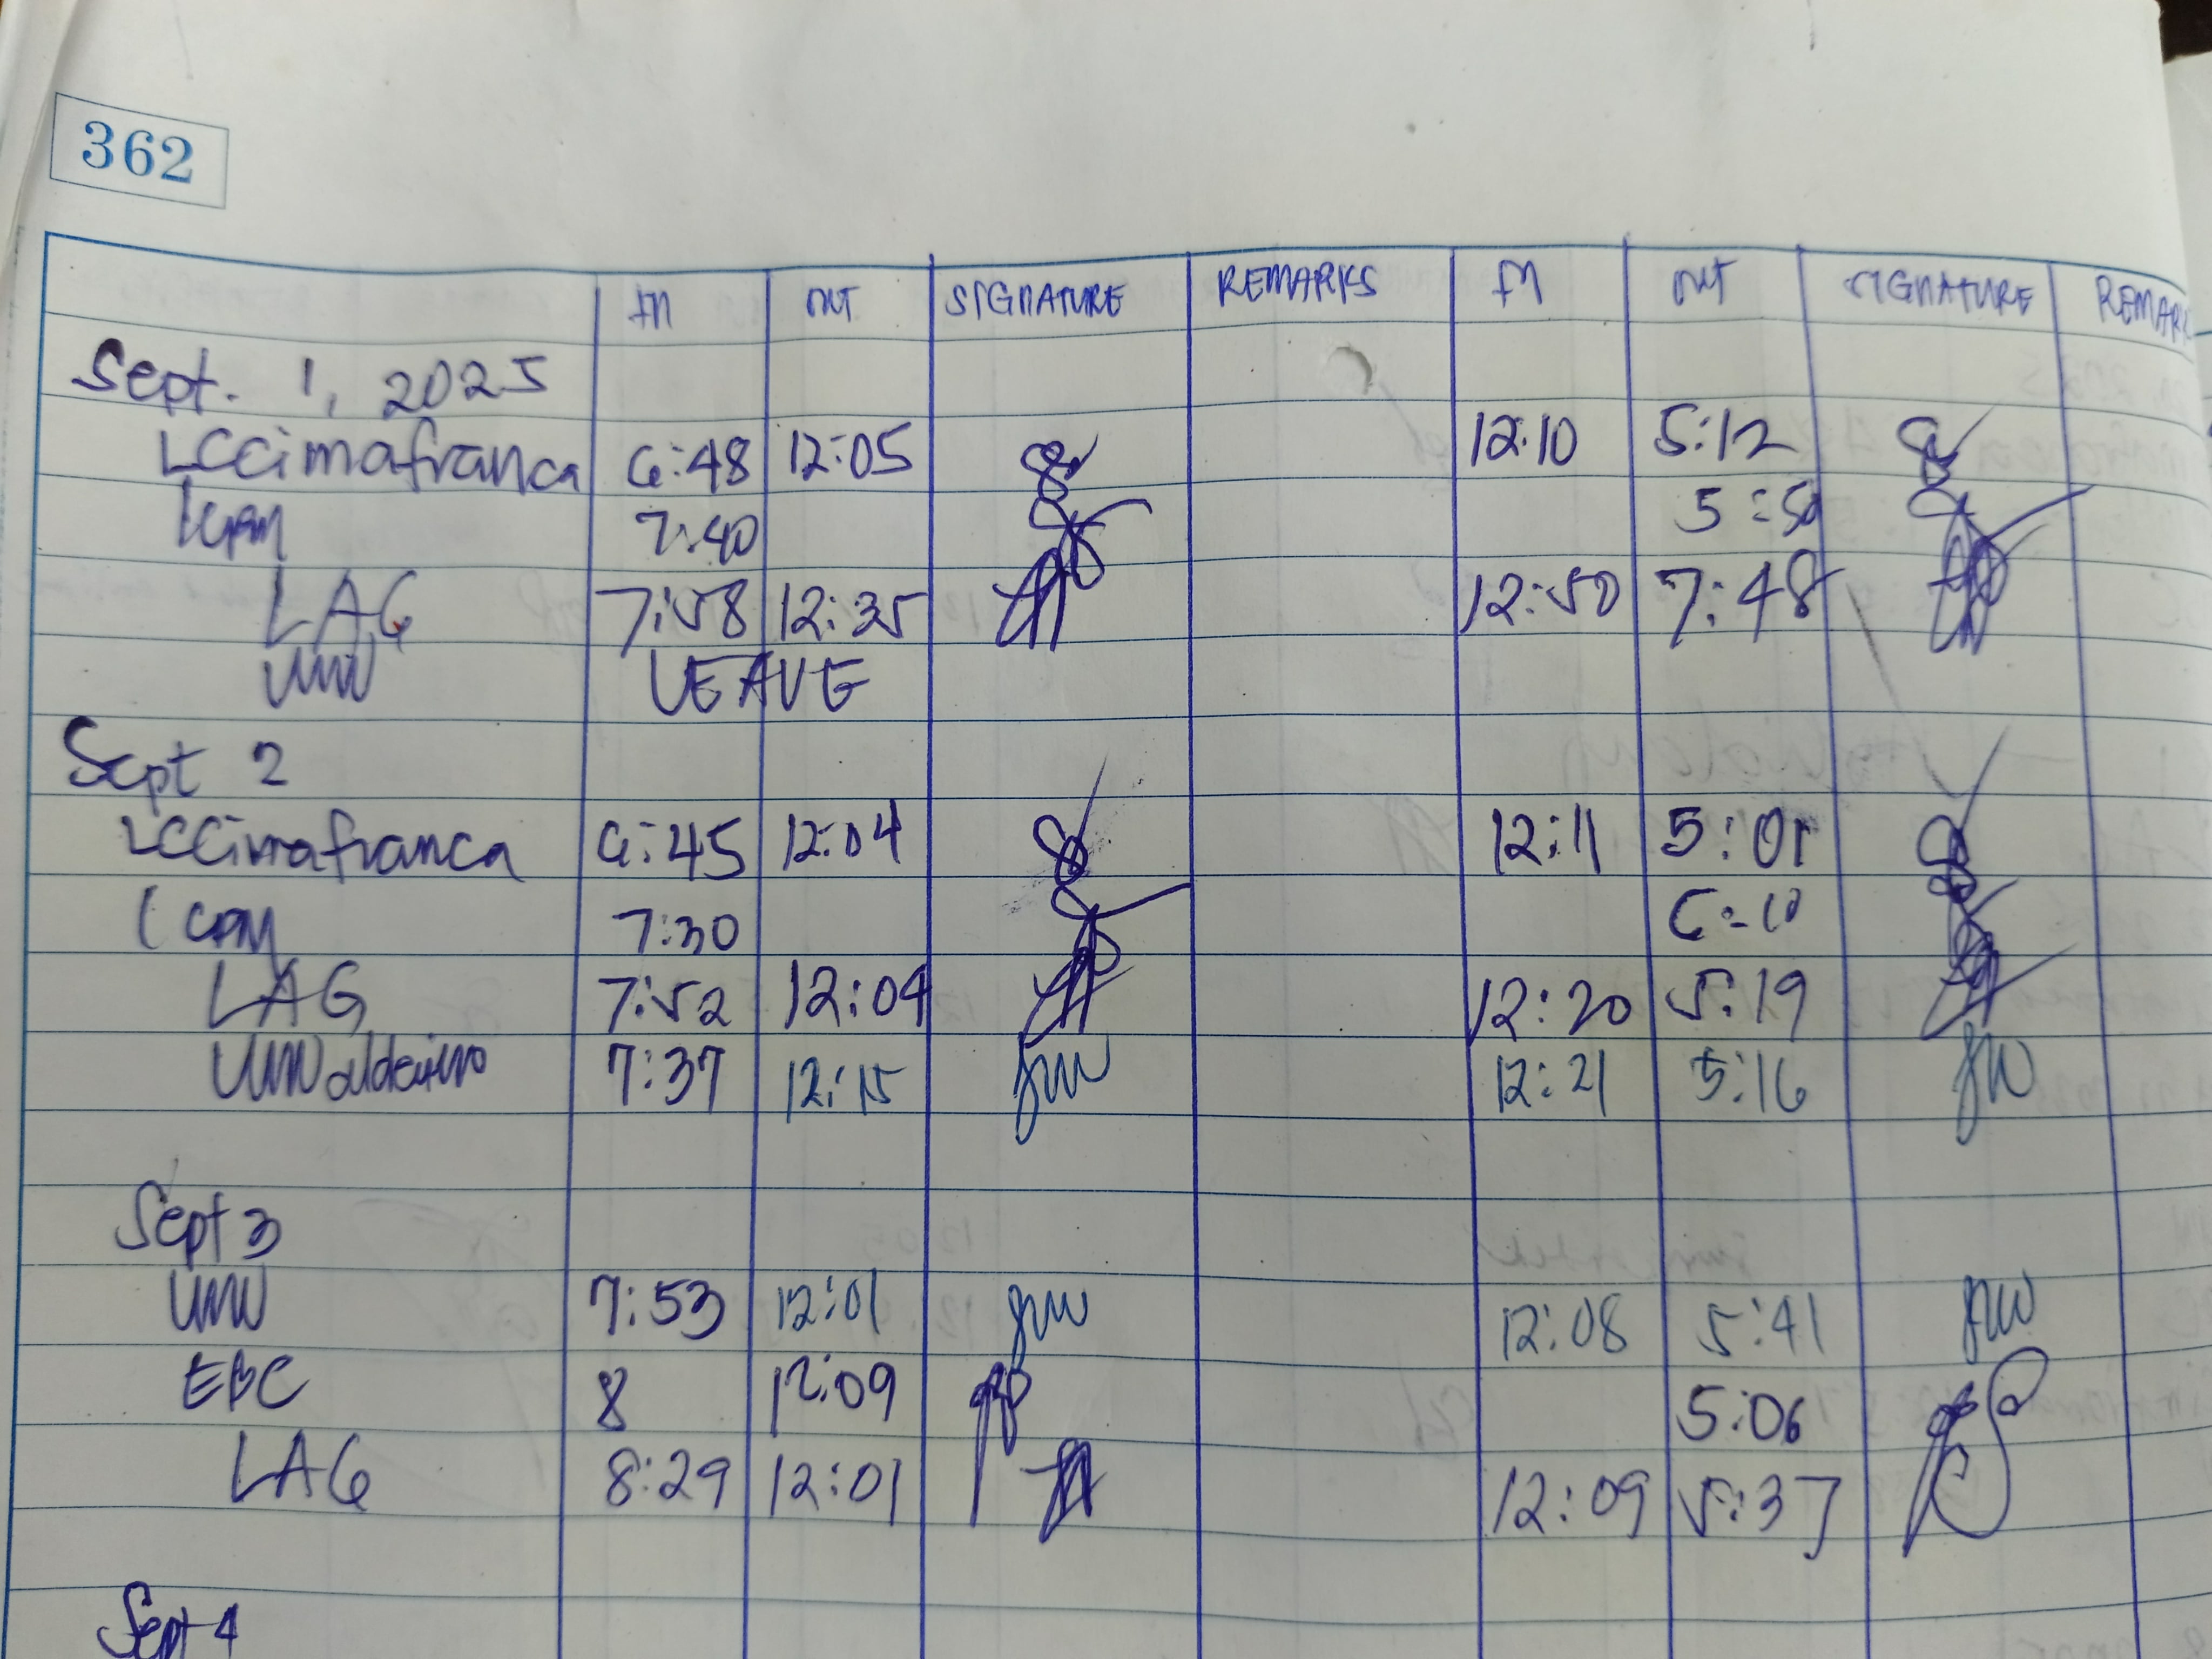 362
IN OUT SIGNATURE REMARKS IN OUT SIGNATURE REMARK
Sept. 1, 2025
LCCimafranca 6:48 12:05 12:10 5:12
7:40 5:50
LAG 7:58 12:35 12:50 7:48
LEAVE
Sept 2
LCCimafranca 6:45 12:04 12:11 5:01
7:30 6:10
LAG 7:52 12:04 12:20 5:19
7:37 12:15 12:21 5:16
Sept 3
7:53 12:01 12:08 5:41
EBC 8 12:09 5:06
LAG 8:29 12:01 12:09 5:37
Sept 4